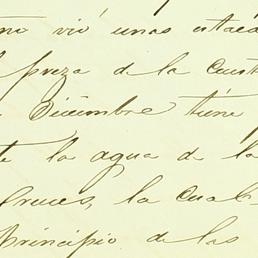 vió unas estacà
preza de la Cons
Diciembre tiene
la agua de la
la cual
principio de las